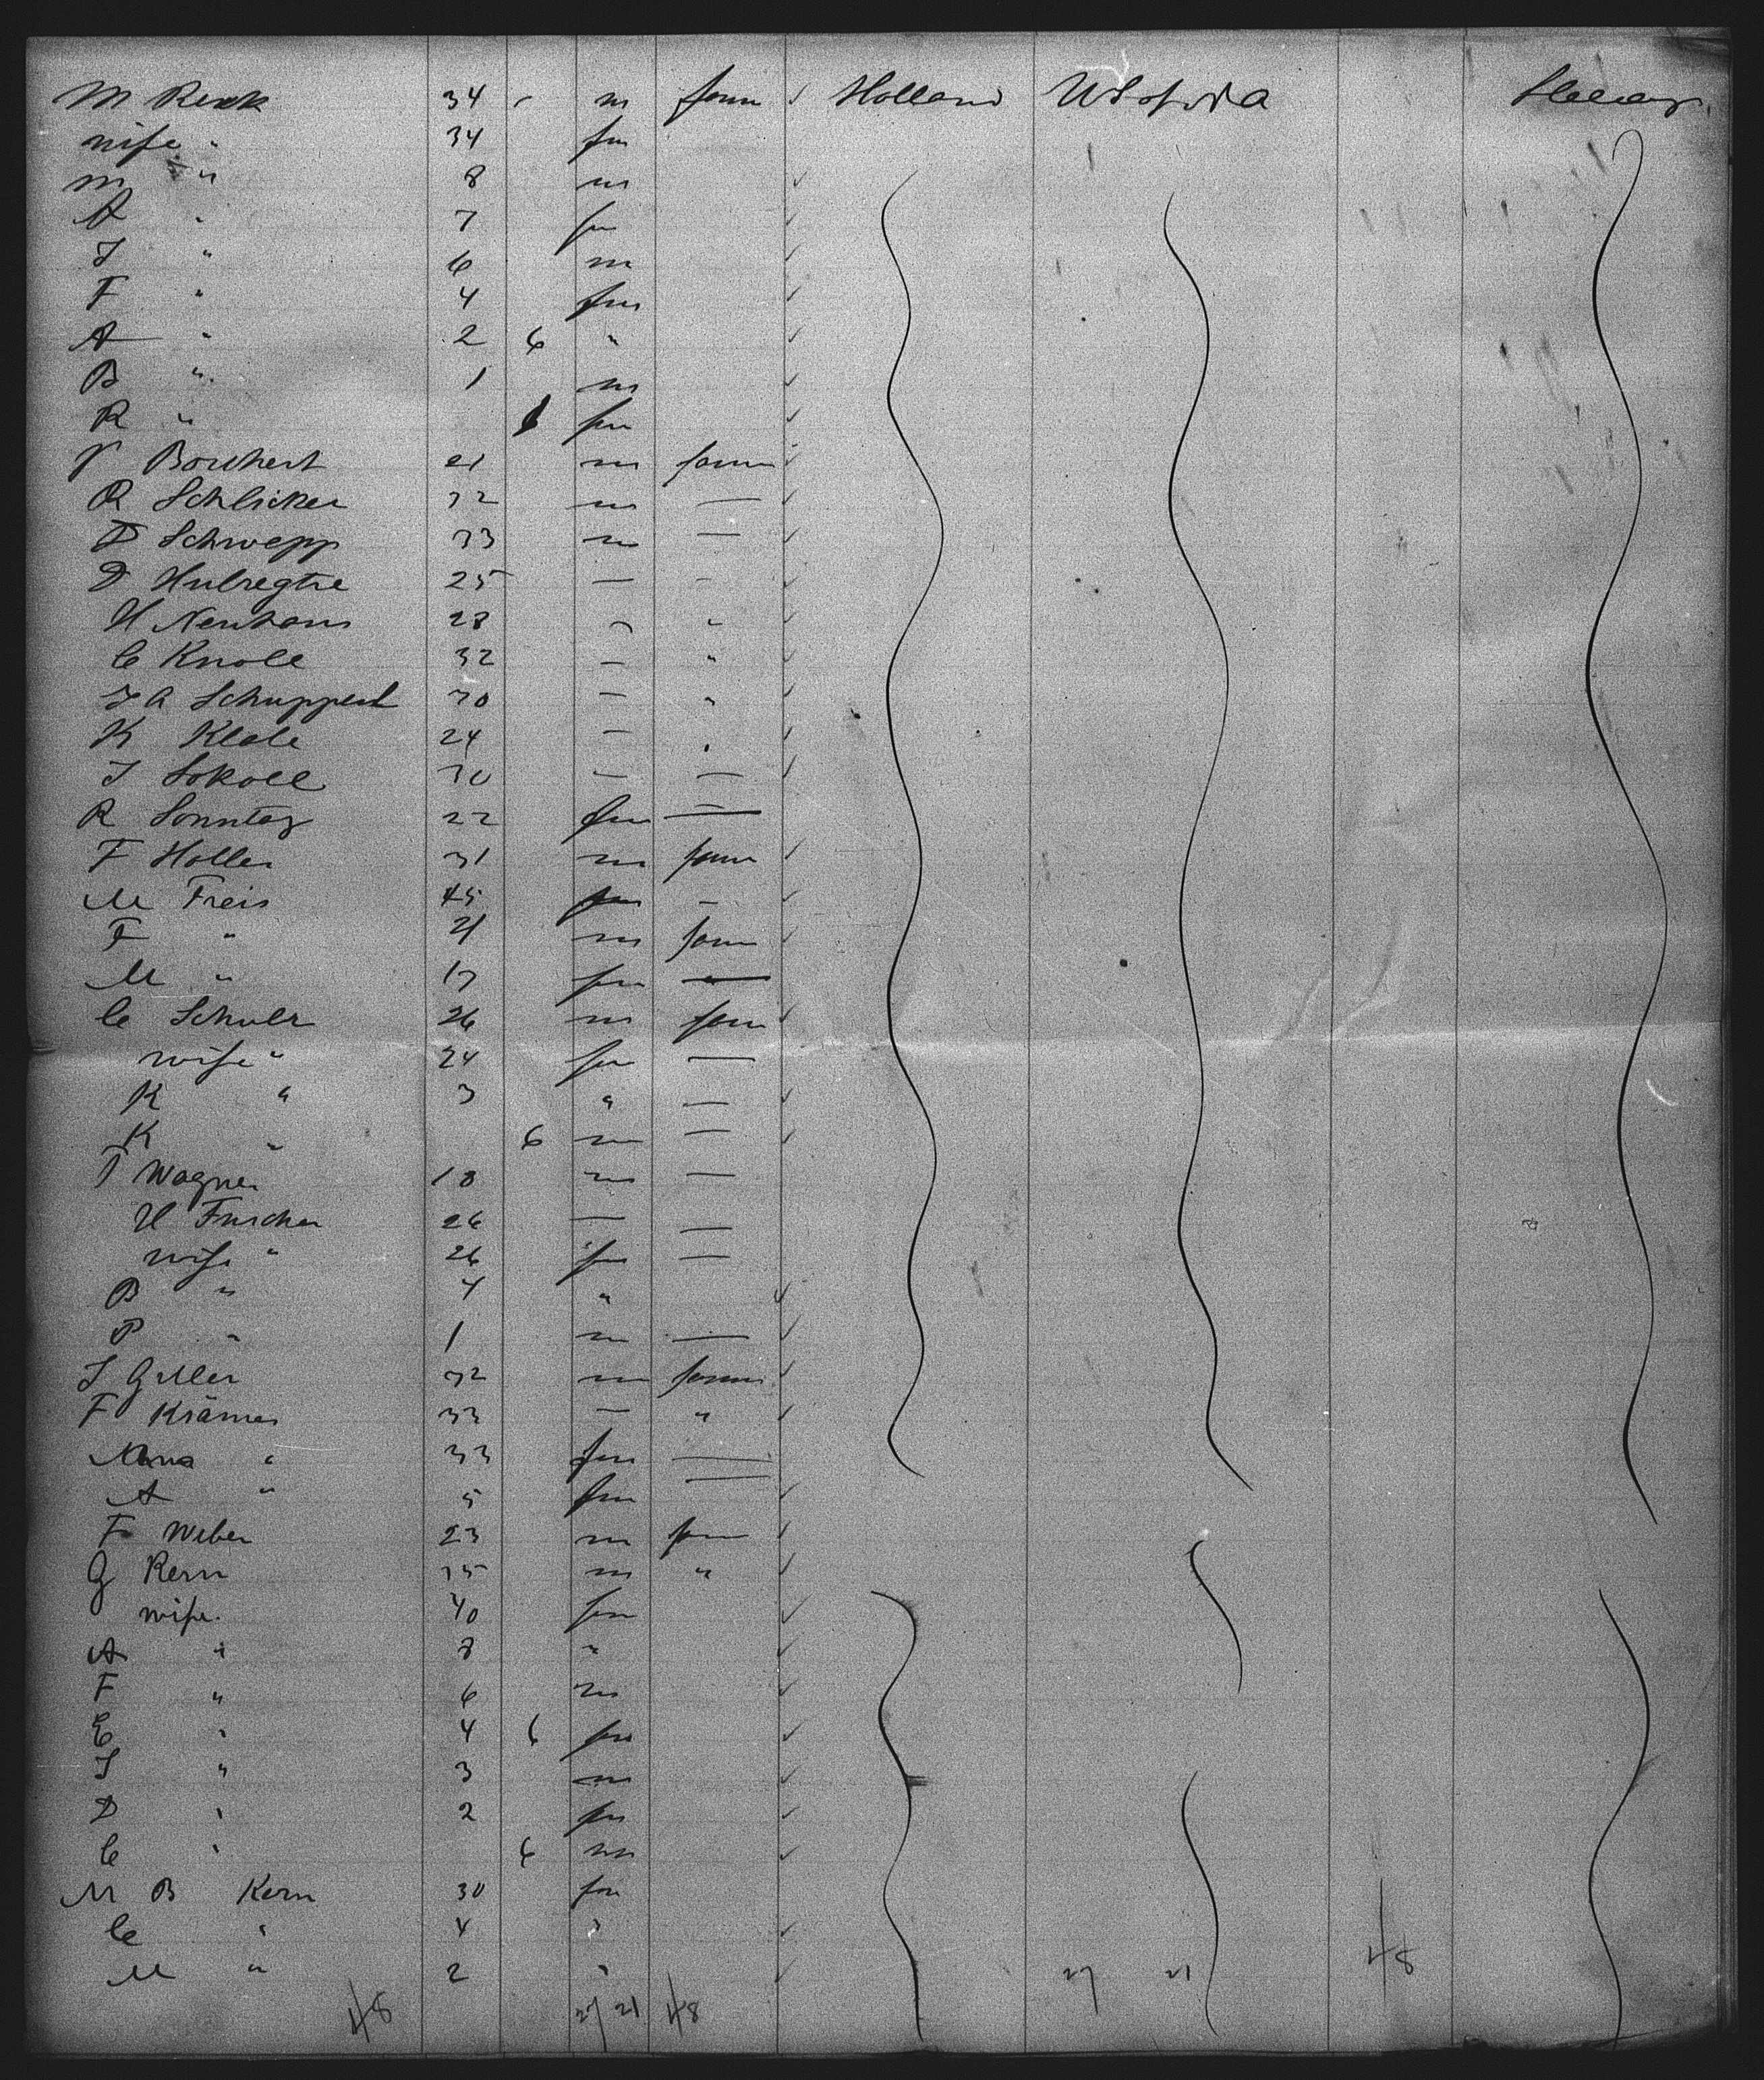 M Renk 34 - m farm ✓ Holland U S of N A Steerage
wife " 34 fm
M " 8 m ✓
A " 7 fm ✓
J " 6 m ✓
F " 4 fm ✓
A " 2 6 " ✓
B " 1 m ✓
R " fm ✓
P Borchert 21 m farm ✓
R Schlicker 32 m — ✓
F Schwepp 33 m — ✓
D Hubregtse 25 — - ✓
H Neuhaus 28 - " ✓
C Knoll 32 — " ✓
J A Schuppert 30 — " ✓
K Klale 24 — " ✓
J Sokoll 30 — — ✓
R Sonntag 22 fm —
F Holler 31 m farm ✓
M Freis 45 fm — ✓
F " 21 m farm ✓
M " 17 fm — ✓
C Schulz 26 m farm ✓
wife " 24 fm —
K " 3 " — ✓
K " 6 m — ✓
T Wagner 18 m —
H Fischer 26 — —
wife " 26 fm —
B " 4 " ✓
P " 1 m — ✓
J Giller 32 m farm ✓
F Krämer 33 — " ✓
Anna " 33 fm —
A " 5 fm ✓
F Weber 23 m farm ✓
G Kern 35 m " ✓
wife. 40 fm ✓
A " 8 " ✓
F " 6 m ✓
E " 4 6 fm ✓
J " 3 m ✓
D " 2 fm ✓
C " 6 m ✓
M B Kern 30 fm
C " 4 " ✓
M " 2 " ✓ 27 21 48
48 27 21 48